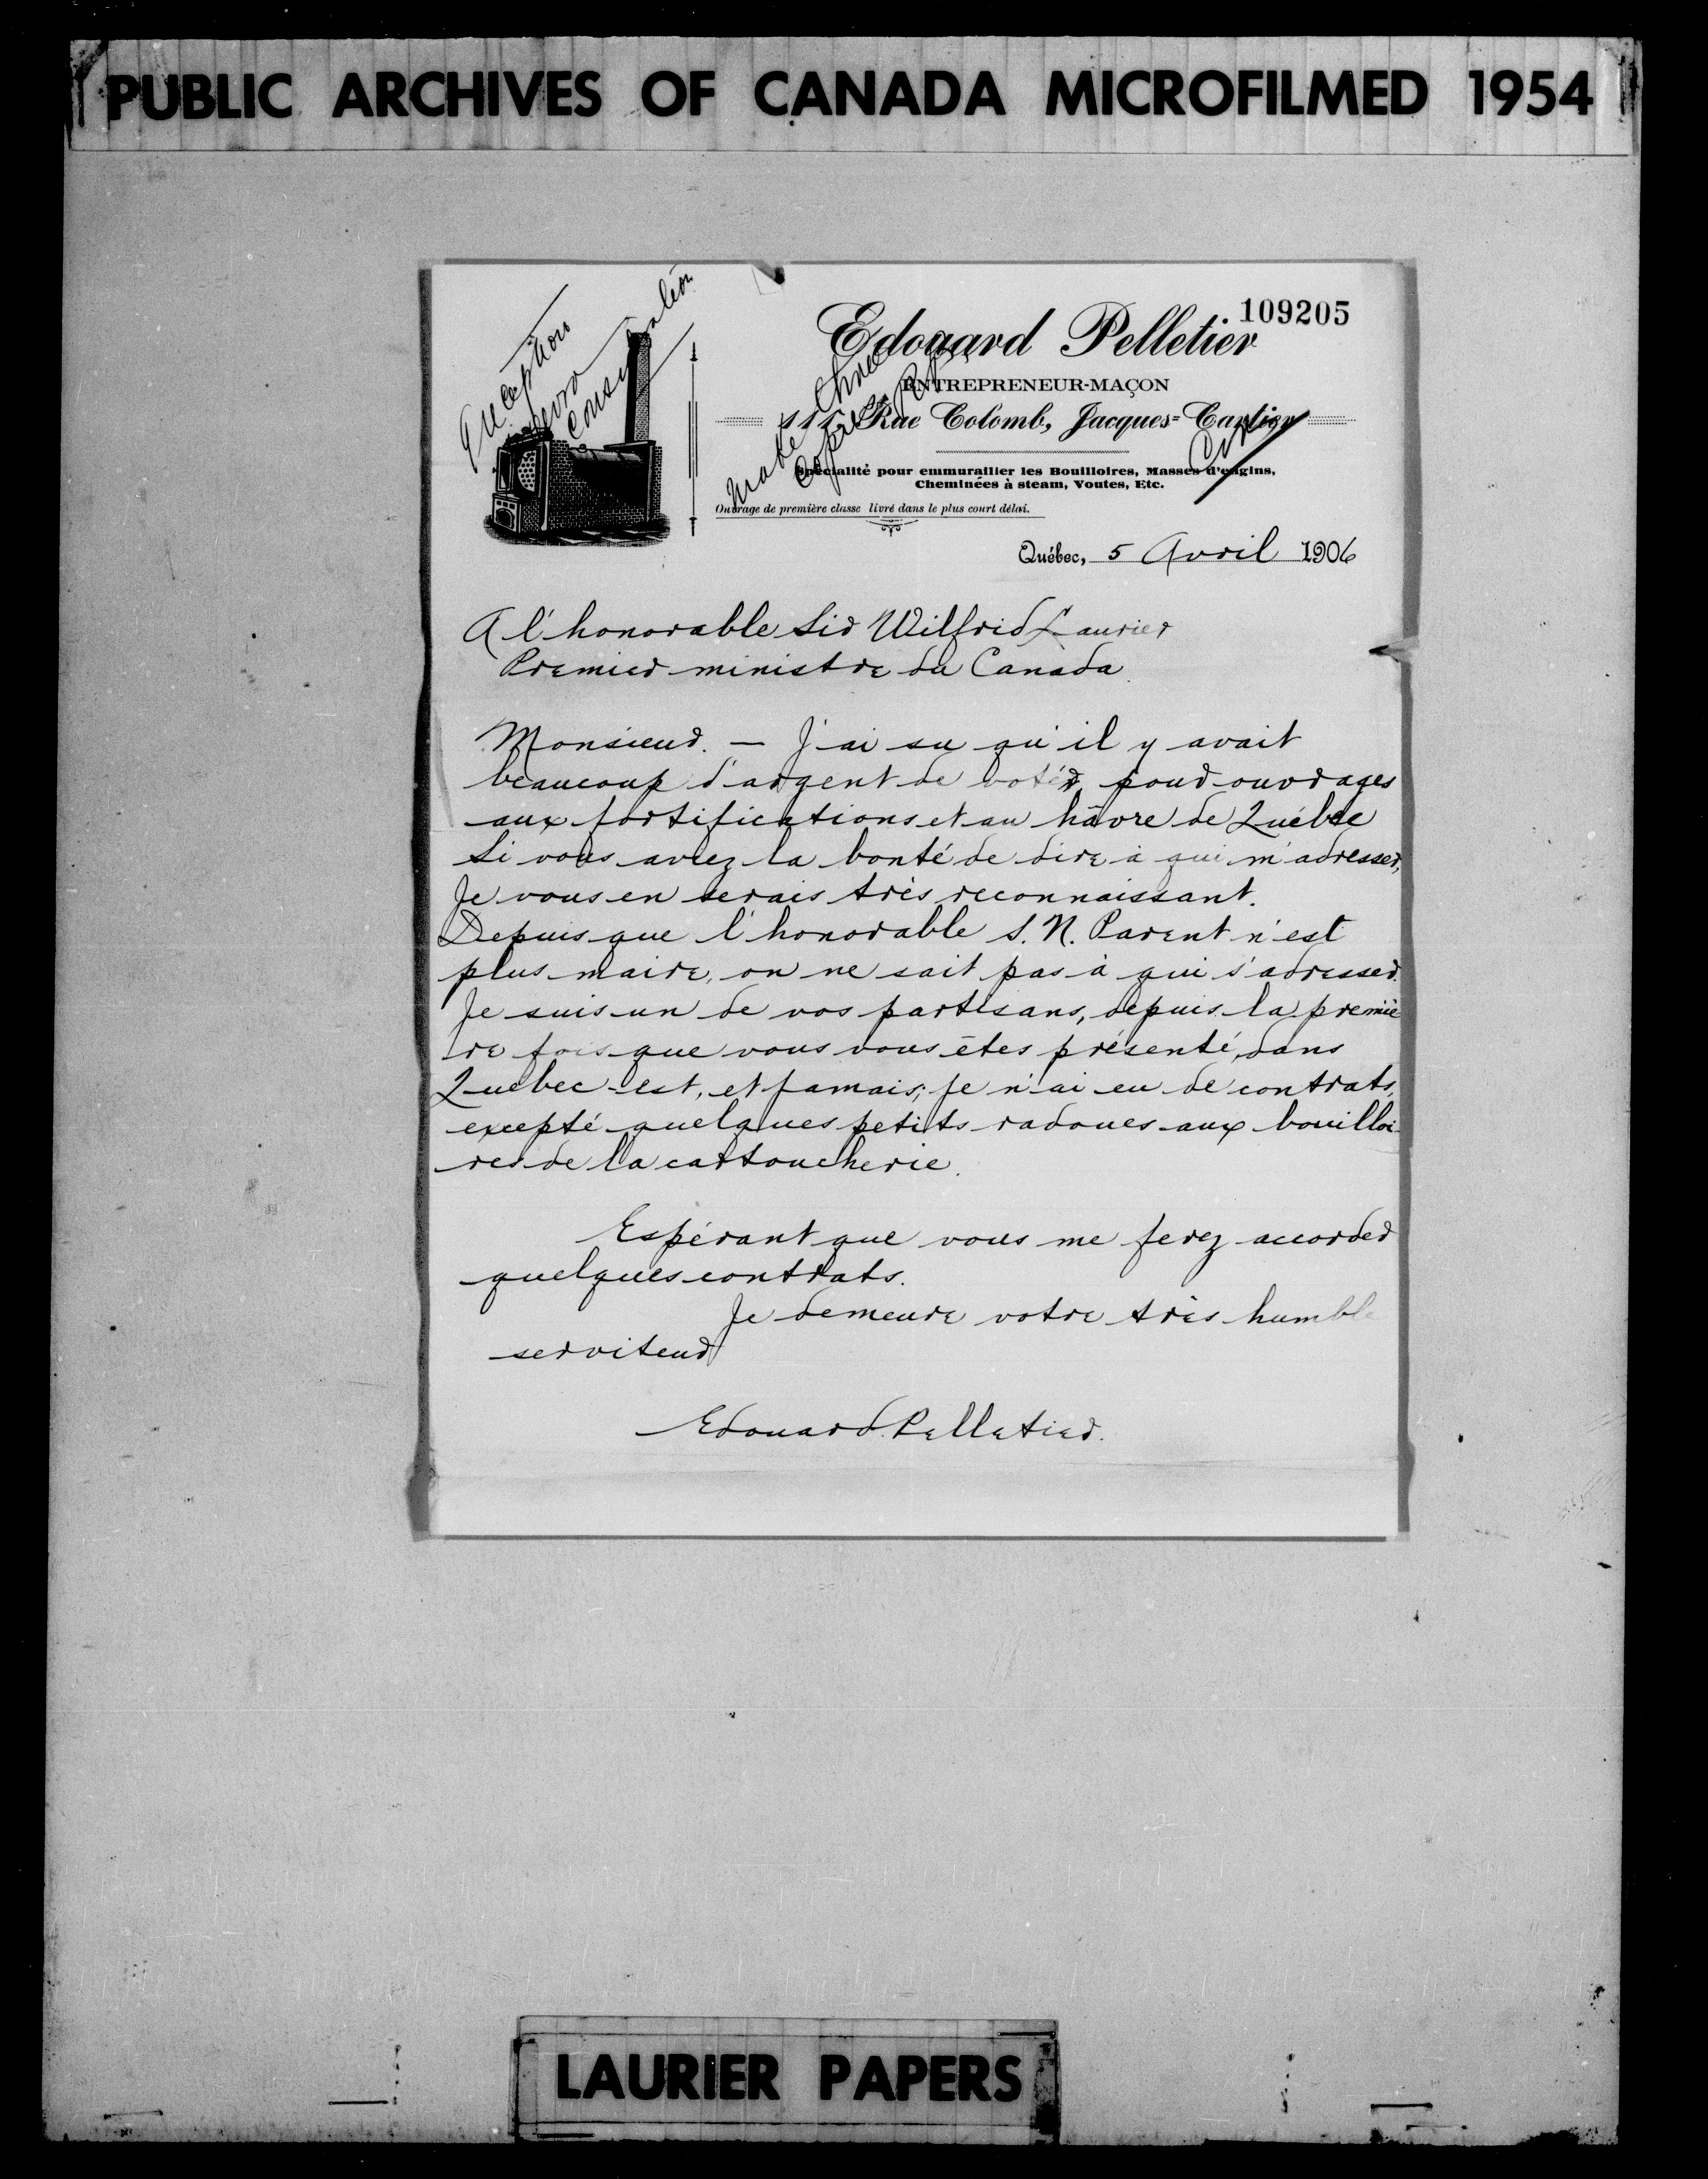 PUBLIC ARCHIVES OF CANADA MICROFILMED 1954
109205
Edouard Pelletier
ENTREPRENEUR-MAÇON
Rue Colomb, Jacques-Cartier
Spécialité pour emmurailler les Bouilloires, Masses d'engins,
Cheminées à steam, Voutes, Etc.
Ouvrage de première classe livré dans le plus court délai.
Québec, 5 Avril 1906
A l'honorable Sir Wilfrid Laurier
Premier ministre du Canada
Monsieur. — J'ai su qu'il y avait
beaucoup d'argent de votér, pour ouvrages
aux fortifications et au hâvre de Québec
Si vous aviez la bonté de dire à qui m'adresser,
Je vous en serais très reconnaissant.
Depuis que l'honorable S. N. Parent n'est
plus maire, on ne sait pas à qui s'adresser.
Je suis un de vos partisans, depuis la premiè
re fois que vous vous êtes présenté, dans
Québec-est, et jamais, je n'ai eu de contrats,
excepté quelques petits radoues aux bouilloi-
res de la cartoucherie.
Espérant que vous me ferez accorder
quelques contrats.
Je demeure votre très humble
serviteur
Edouard Pelletier.
LAURIER PAPERS